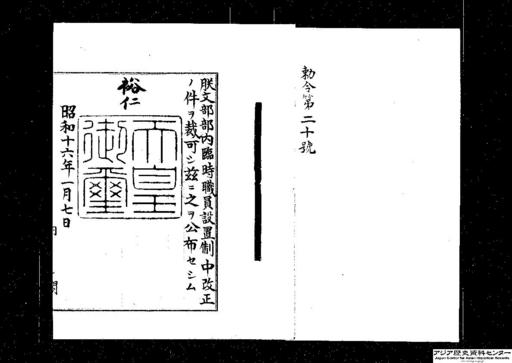 勅令第二十號
朕文部部内臨時職員設置制中改正
ノ件ヲ裁可シ茲ニ之ヲ公布セシム
裕仁
天皇
御璽
昭和十六年一月七日
アジア歴史資料センター
Japan Center for Asian Historical Records